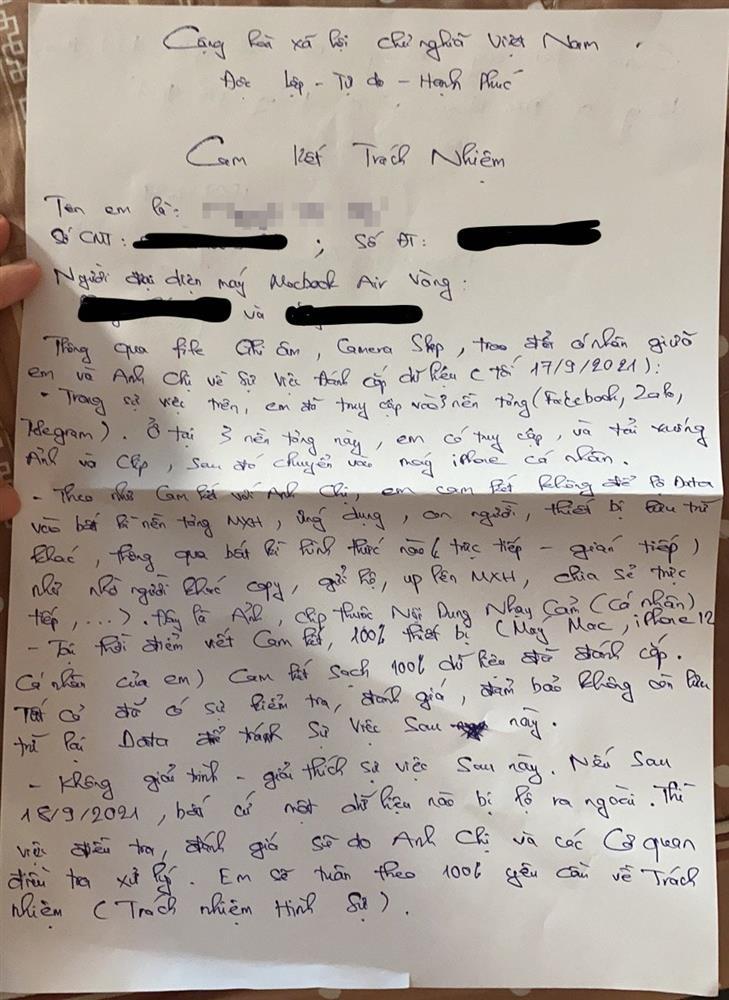 Cộng hoà xã hội chủ nghĩa Việt Nam.
Độc lập - Tự do - Hạnh Phúc
Cam kết Trách Nhiệm
Tên em là:
Số CMT: ; Số ĐT:
Người đại diện máy Macbook Air Vàng:
và
Thông qua file Ghi âm, Camera Shop, trao đổi cá nhân giữa
em và Anh Chị về Sự việc Đánh cắp dữ liệu (tối 17/9/2021):
- Trong sự việc trên, em đã truy cập vào 3 nền tảng (Facebook, Zalo,
Telegram). Ở tại 3 nền tảng này, em có truy cập, và tải xuống
Ảnh và Clip, sau đó chuyển vào máy iPhone cá nhân.
- Theo như Cam kết với Anh Chị, em cam kết không để lộ Data
vào bất kì nền tảng MXH, ứng dụng, con người, thiết bị lưu trữ
khác, thông qua bất kì hình thức nào (trực tiếp - gián tiếp)
như nhờ người khác copy, gửi hộ, up lên MXH, chia sẻ trực
tiếp, ...). Đây là Ảnh, clip thuộc Nội Dung Nhạy Cảm (Cá nhân)
- Tại thời điểm viết Cam kết, 100% thiết bị (Máy Mac, iPhone 12
Cá nhân của em) Cam kết sạch 100% dữ liệu đã đánh cắp.
Tất cả đã có sự kiểm tra, đánh giá, đảm bảo không còn lưu
trữ lại Data để tránh sự việc sau này.
- Không giải trình - giải thích sự việc sau này. Nếu sau
18/9/2021, bất cứ một dữ liệu nào bị lộ ra ngoài. Thì
việc điều tra, đánh giá sẽ do Anh Chị và các Cơ quan
điều tra xử lý. Em sẽ tuân theo 100% yêu cầu về Trách
nhiệm (Trách nhiệm Hình Sự).